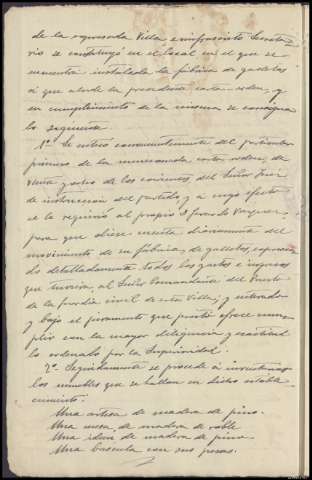 de la expresada Villa e infrascrito Secreta-
rio se constituyó en el local en el que se
encuentra instalada la fábrica de galletas
a que alude la precedente carta-orden, y
en cumplimiento de la misma se consigna
lo siguiente
1º. Se enteró convenientemente del particular
primero de la mencionada carta orden, de
fecha del Señor Juez
de instrucción del partido, y a cuyo efecto
se le requirió al propio
para que diese cuenta diariamente del
movimiento de su fábrica, de galletas, expresan-
do detalladamente todos los gastos e ingresos
que tuviera, al Señor Comandante del Puesto
de la guardia civil de esta Villa, y enterado
y bajo el juramento que prestó ofrece cum-
plir con la mayor diligencia y exactitud
lo ordenado por la Superioridad.
2º. Seguidamente se procede a inventariar
los muebles que se hallan en dicho estable-
cimiento.
Una artesa de madera de pino.
Una mesa de madera de roble
Una idem de madera de pino
Una bascula con sus pesas.